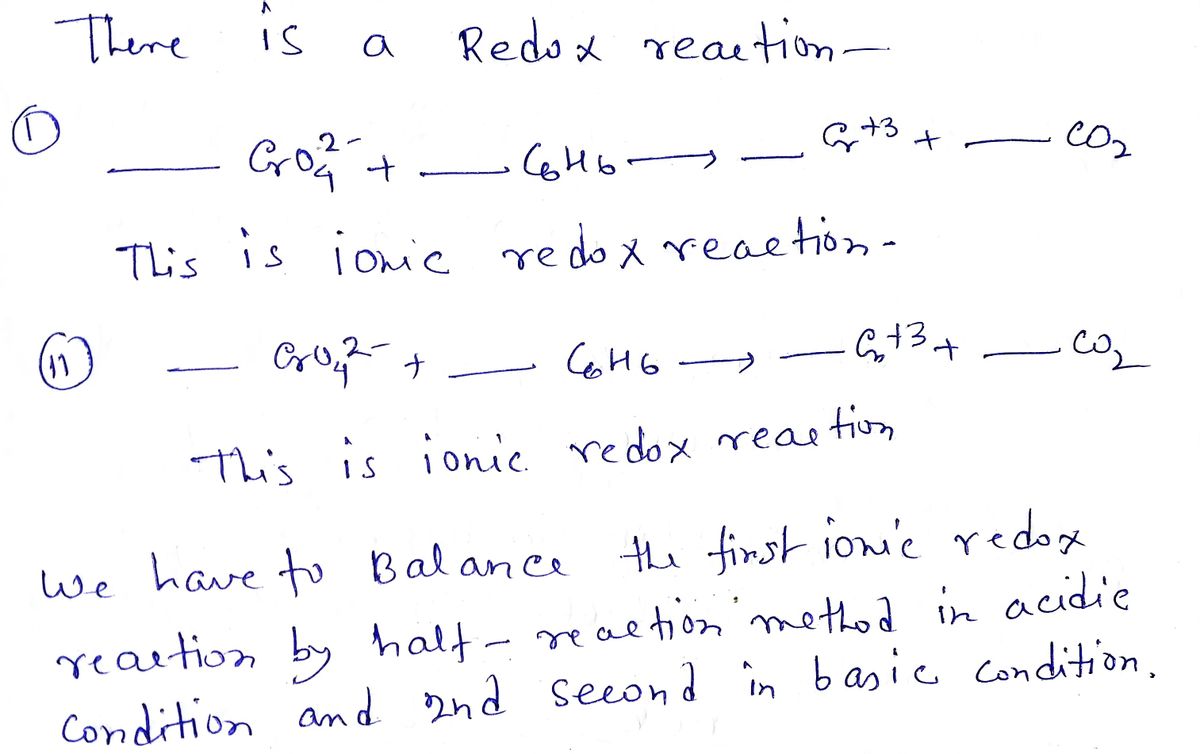 There is a Redox reaction—
① __ CrO₄²⁻ + __ C₆H₆ → __ Cr⁺³ + __ CO₂
This is ionic redox reaction -
⑪ __ CrO₄²⁻ + __ C₆H₆ → __ Cr⁺³ + __ CO₂
This is ionic. redox reaction
We have to Balance the first ionic redox
reaction by half - reaction method in acidic
condition and 2nd second in basic condition.